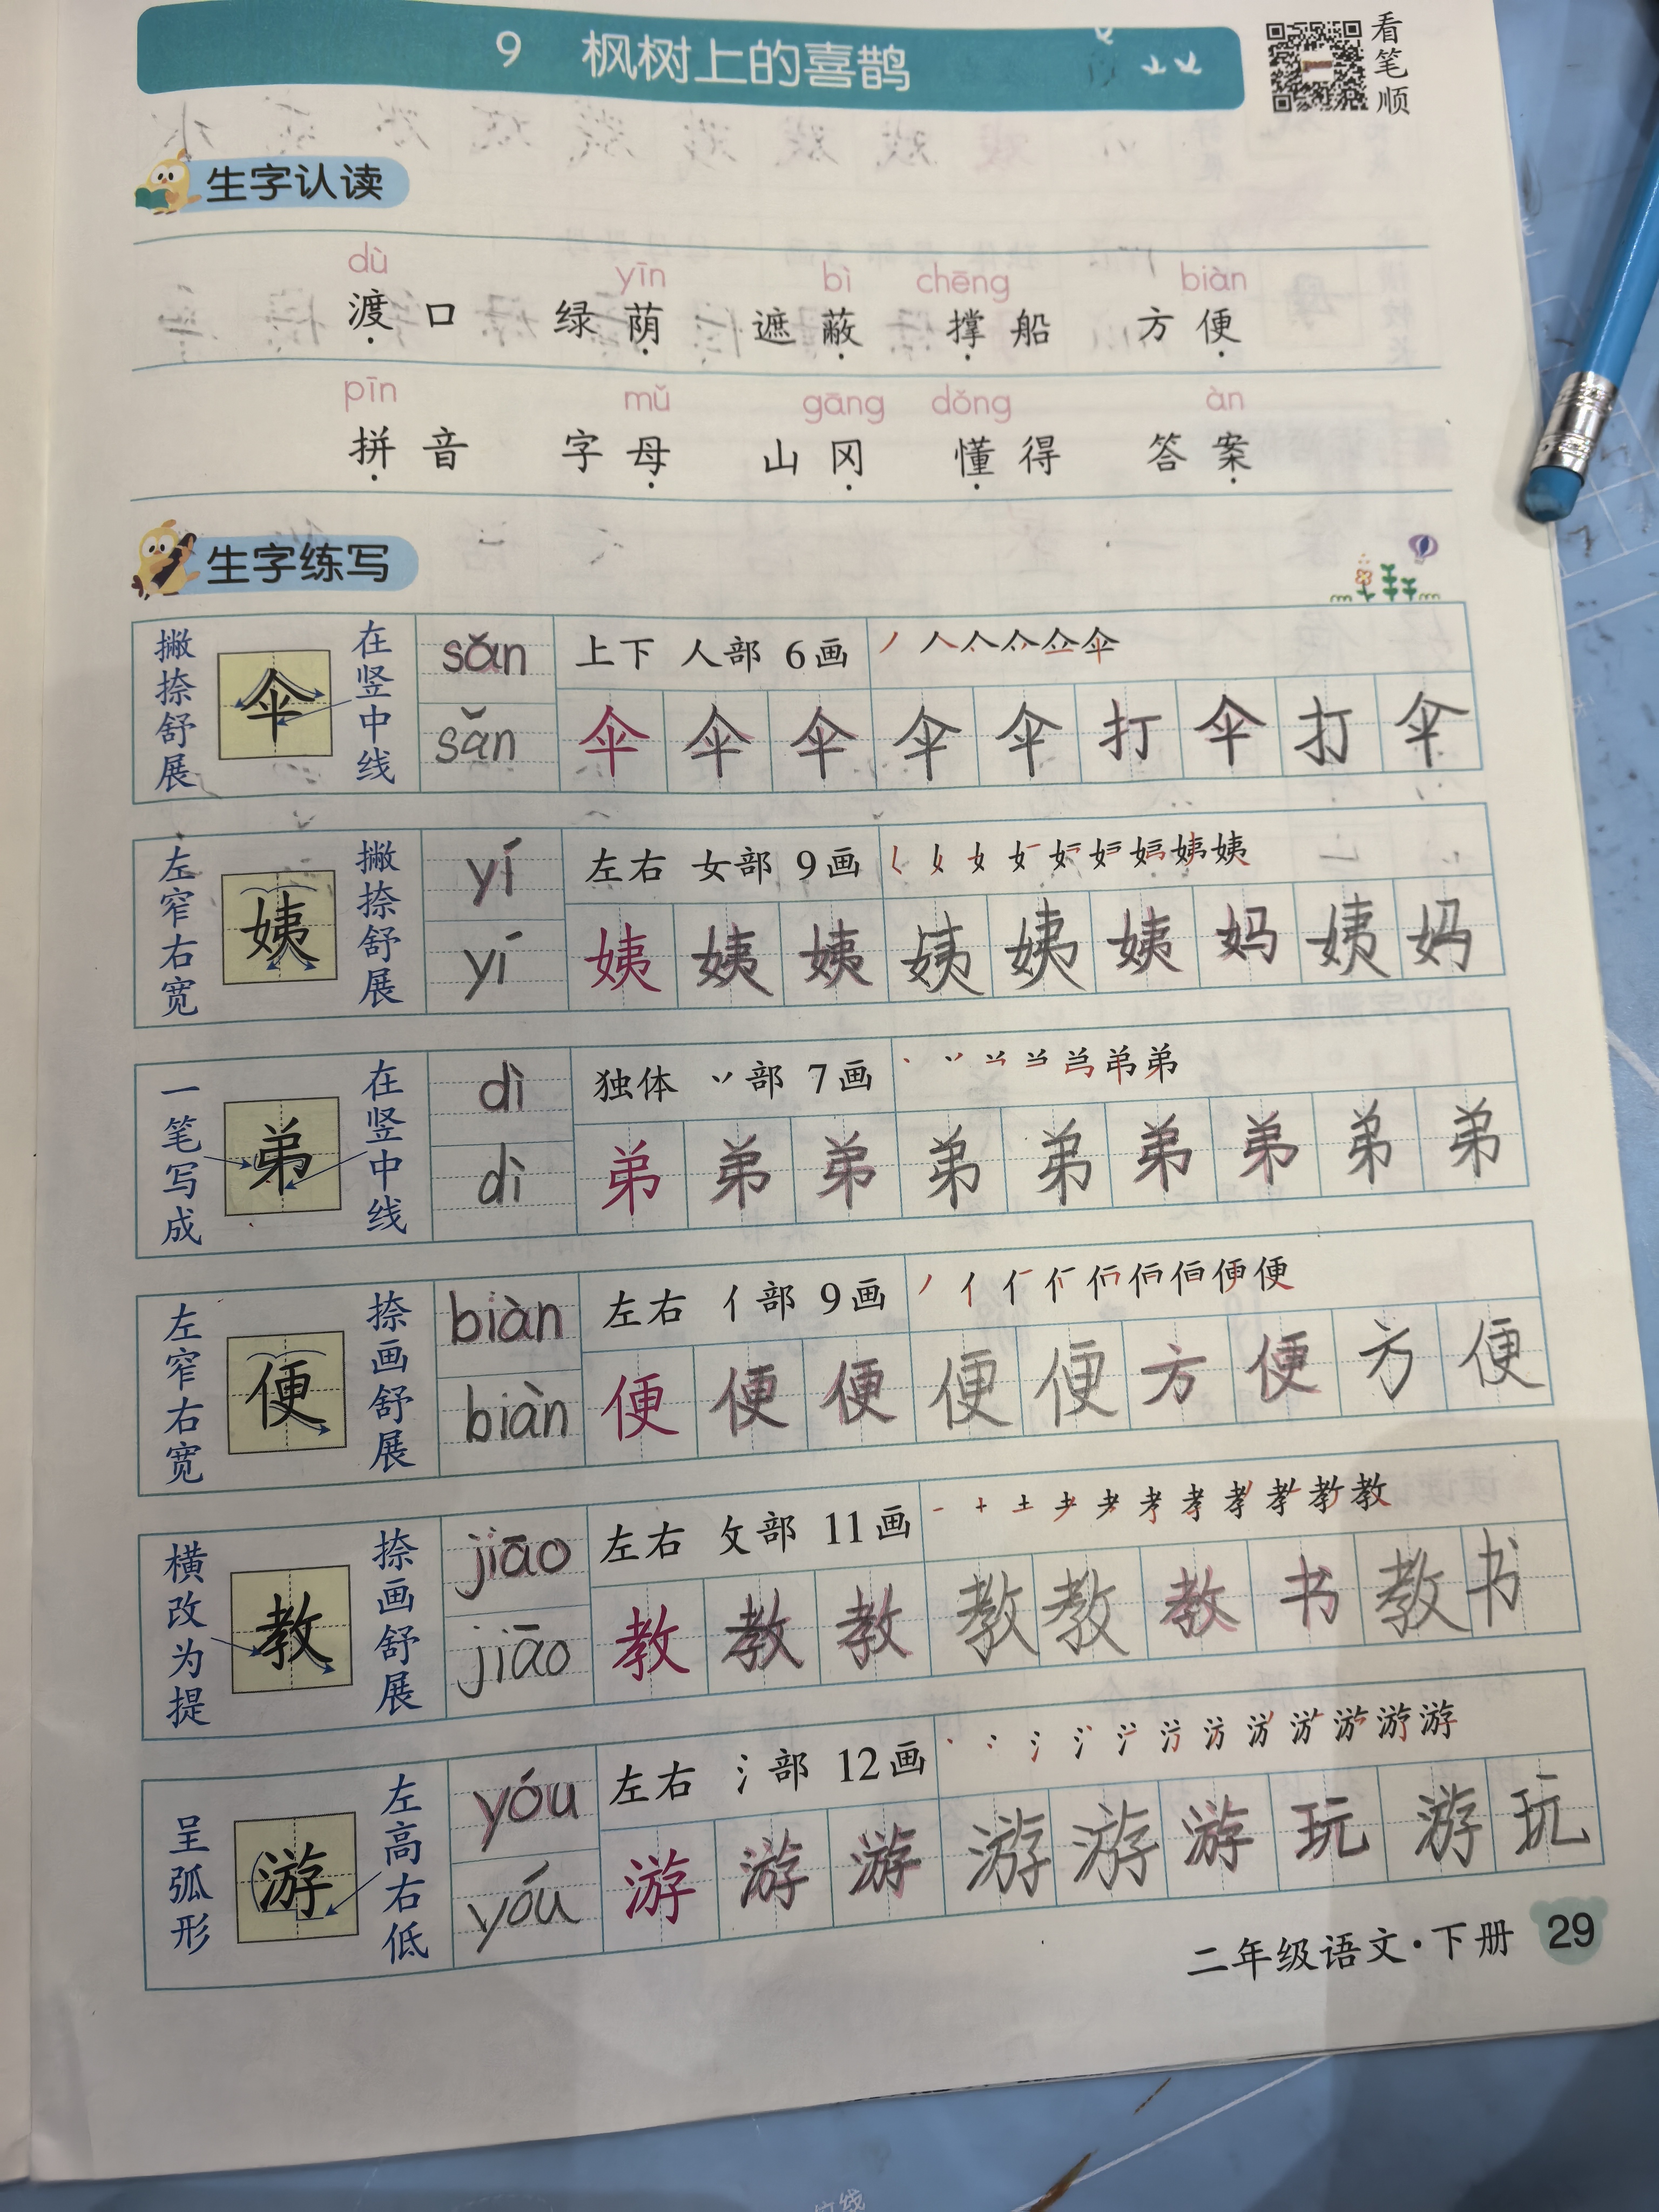 9 枫树上的喜鹊
看笔顺
生字认读
dù yīn bì chēng biàn
渡口 绿荫 遮蔽 撑船 方便
pīn mǔ gāng dǒng àn
拼音 字母 山冈 懂得 答案
生字练写
撇捺舒展
伞
在竖中线
sǎn
上下 人部 6画
sǎn
伞 伞 伞 伞 伞 打 伞 打 伞
左窄右宽
姨
撇捺舒展
yí
左右 女部 9画
yí
姨 姨 姨 姨 姨 姨 妈 姨 妈
一笔写成
弟
在竖中线
dì
独体 丷部 7画
dì
弟 弟 弟 弟 弟 弟 弟 弟 弟
左窄右宽
便
捺画舒展
biàn
左右 亻部 9画
biàn
便 便 便 便 便 方 便 方 便
横改为提
教
捺画舒展
jiāo
左右 攵部 11画
jiāo
教 教 教 教 教 教 书 教 书
呈弧形
游
左高右低
yóu
左右 氵部 12画
yóu
游 游 游 游 游 游 玩 游 玩
二年级语文·下册 29